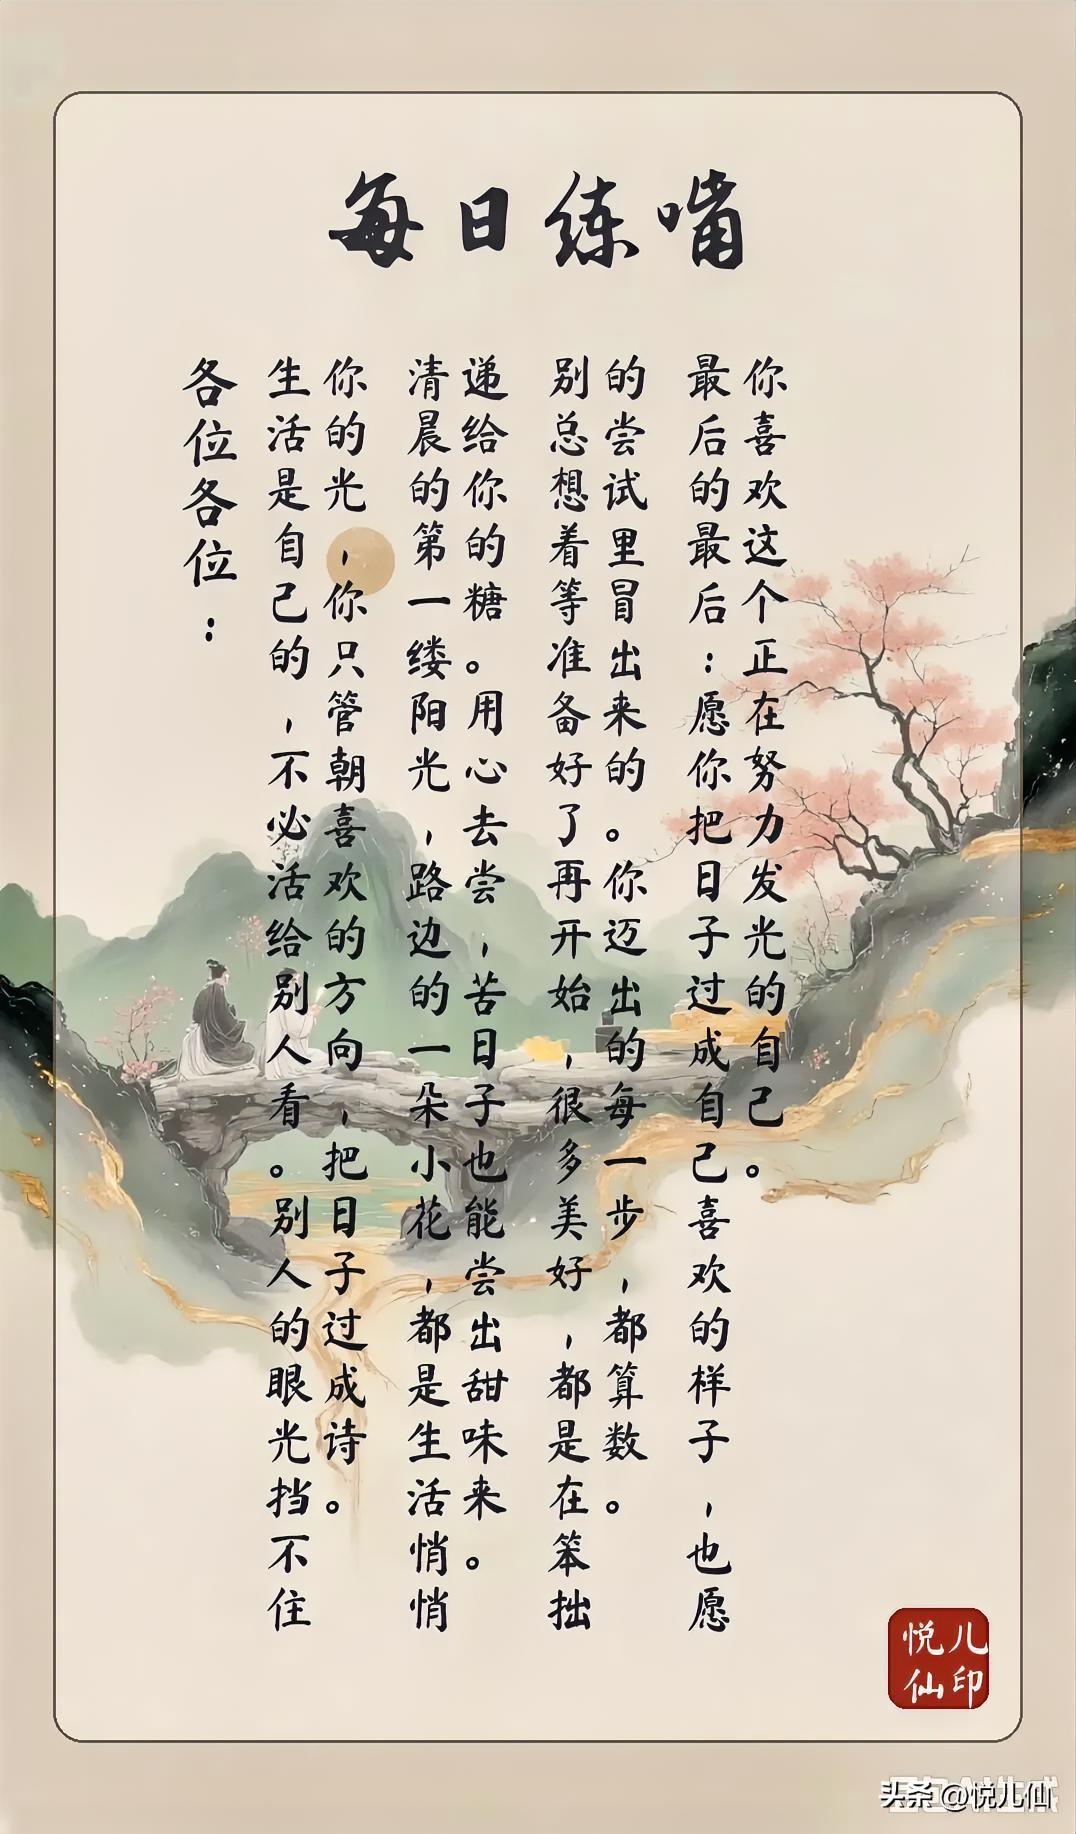 每日练嘴
各位各位：
生活是自己的，不必活给别人看。别人的眼光挡不住
你的光，你只管朝喜欢的方向，把日子过成诗。
清晨的第一缕阳光，路边的一朵小花，都是生活悄悄
递给你的糖。用心去尝，苦日子也能尝出甜味来。
别总想着等准备好了再开始，很多美好，都是在笨拙
的尝试里冒出来的。你迈出的每一步，都算数。
最后的最后：愿你把日子过成自己喜欢的样子，也愿
你喜欢这个正在努力发光的自己。
悦儿
仙印
头条 @悦儿仙